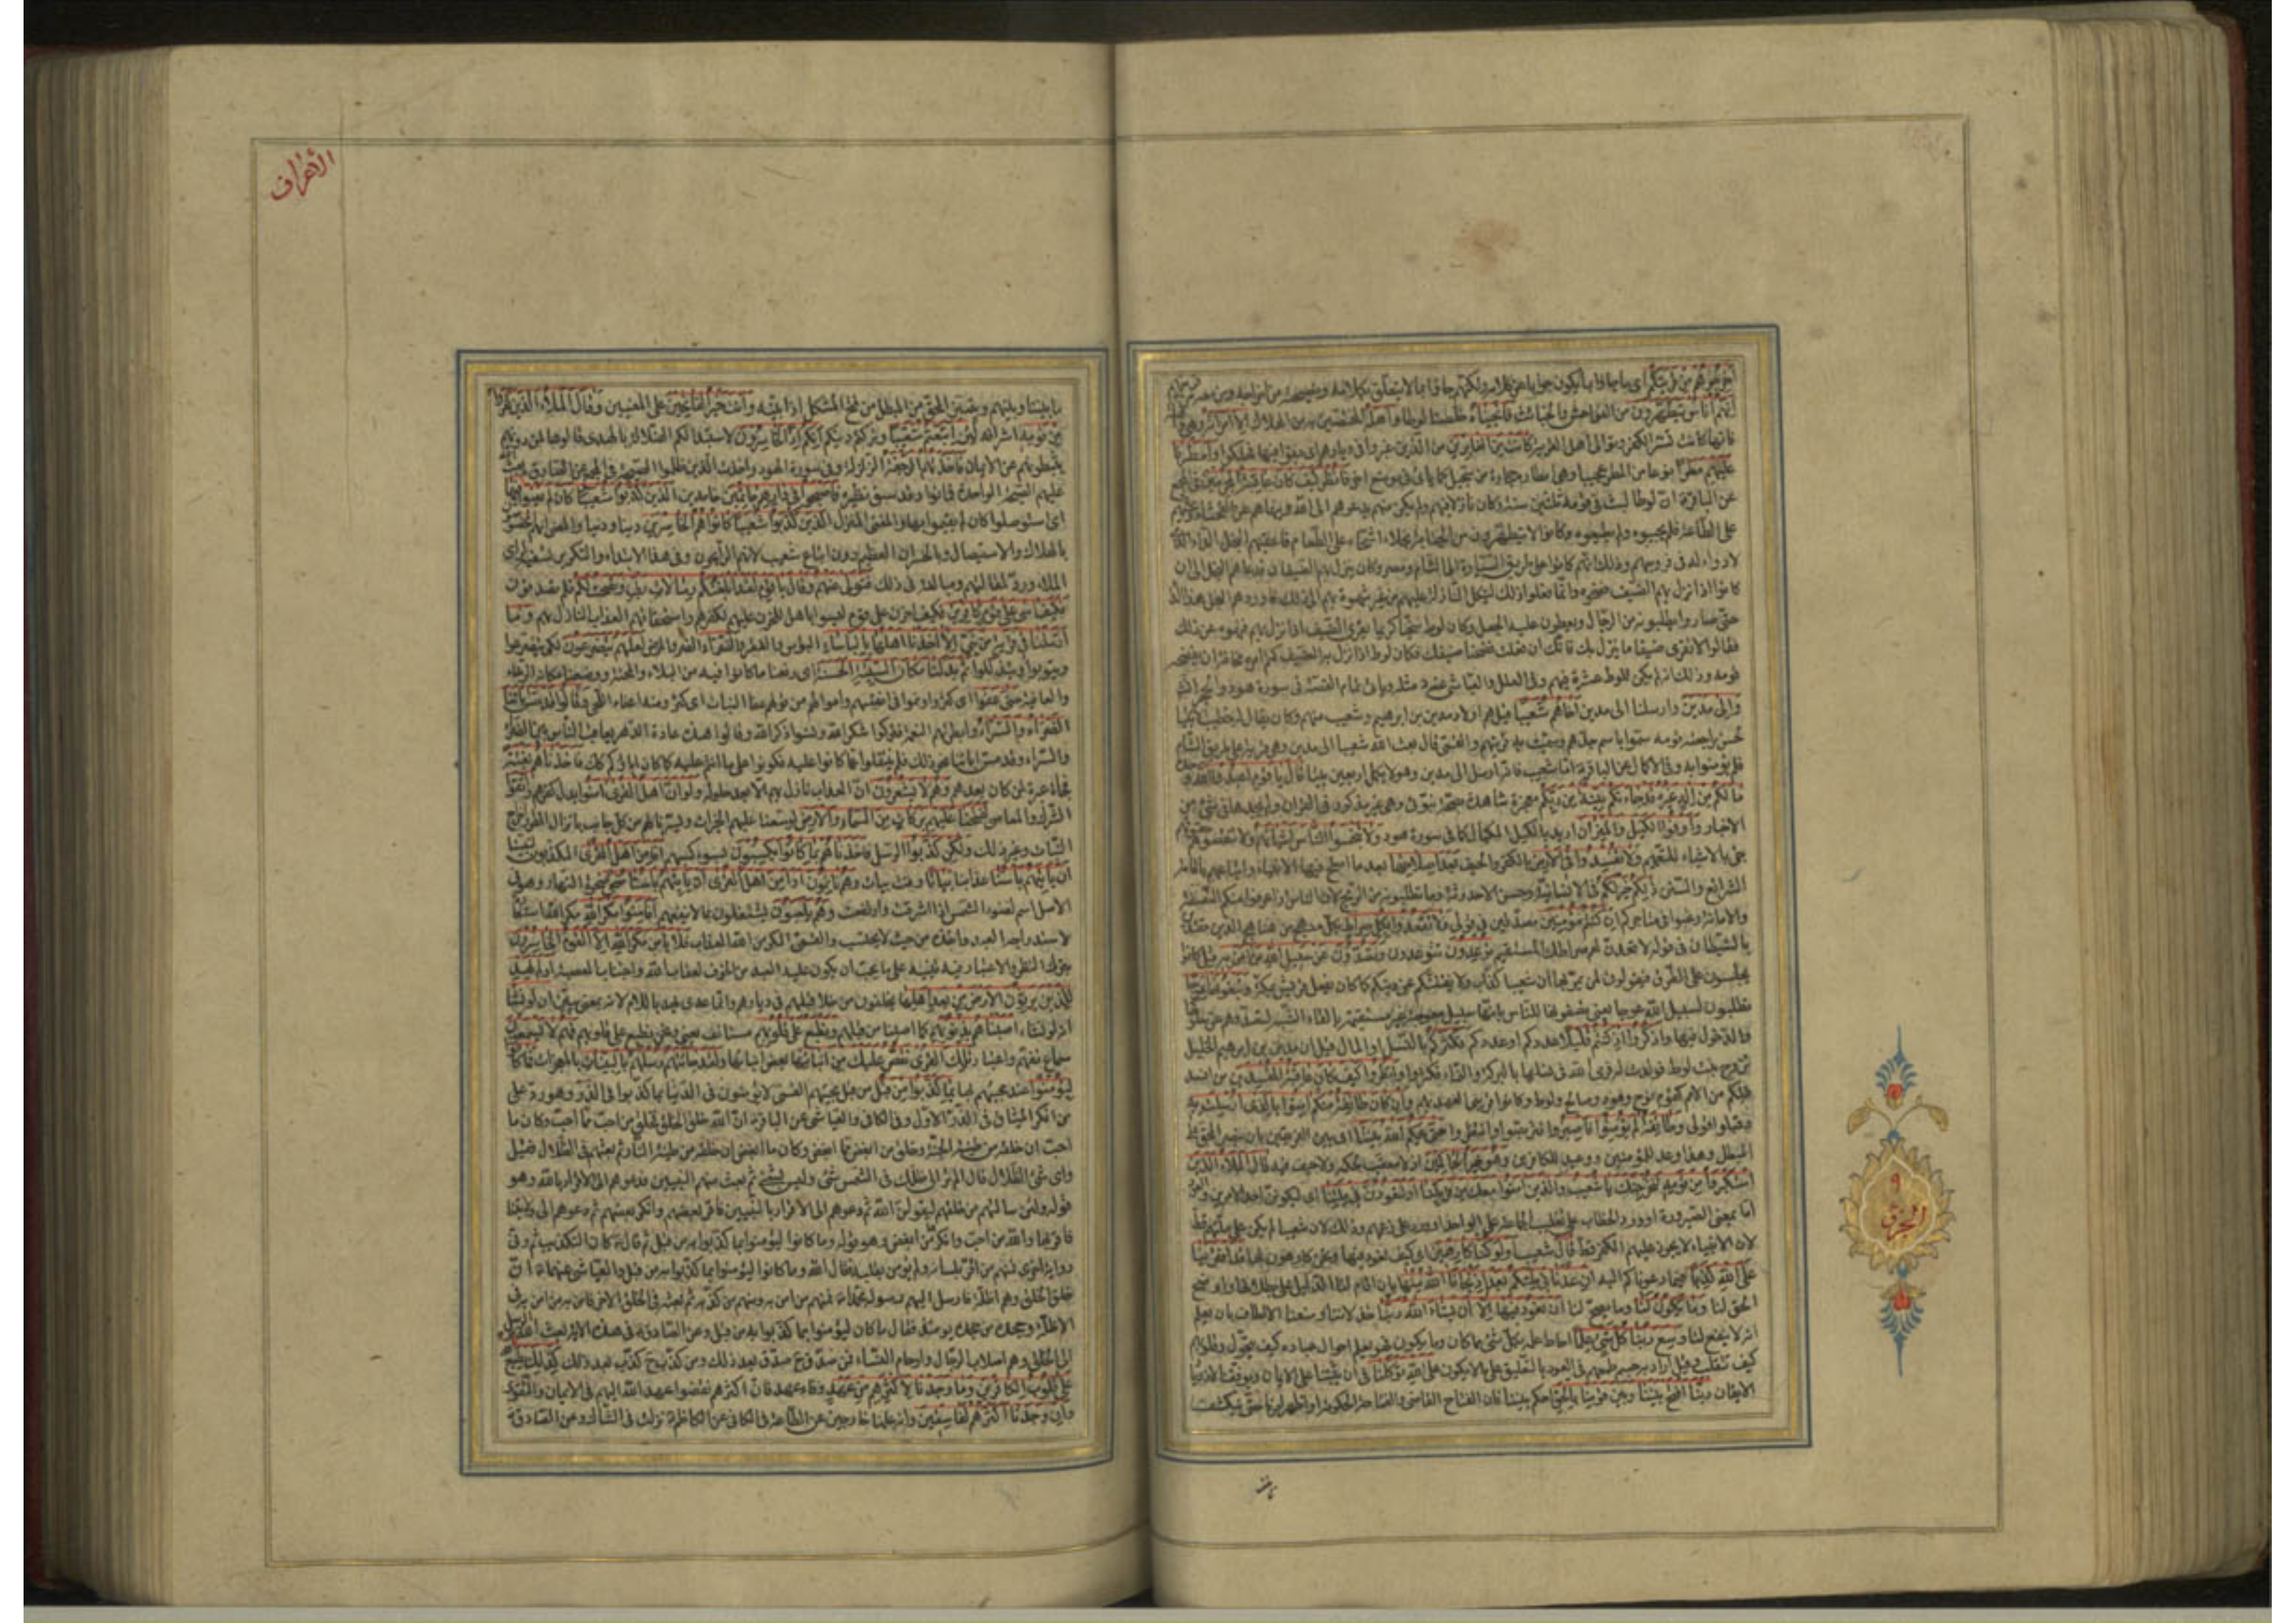 أخرجوهم من قريتكم اى ما جاؤا بما يكون جوابا عن كلامه ولكنهم جاؤا بما لا يتعلق بكلامه ونصيحته من اخراجه ومن معه من
إنهم أناس يتطهرون من الفواحش والخبائث فأنجيناه خلصنا لوطا وأهله المختصين به من الهلاك إلا امرأته وهى
فانها كانت تسر الكفر وتوالى اهل القرية كانت من الغابرين من الذين غبروا فى ديارهم اى بقوا فيها فهلكوا وأمطرنا
عليهم مطرا نوعا من المطر عجيبا وهى امطار حجارة من سجيل كما يأتى فى موضع اخر فانظر كيف كان عاقبة المجرمين فى المجمع
عن الباقر ان لوطا لبث فى قومه ثلثين سنة وكان نازلا فيهم ولم يكن منهم يدعوهم الى الله وينهاهم عن الفحشاء ويحثهم
على الطاعة فلم يجيبوه ولم يطيعوه وكانوا لا يتطهرون من الجنابة بخلاء اشحاء على الطعام فاعقبهم البخل الداء الذى
لا دواء له فى فروجهم وذلك انهم كانوا على طريق السيارة الى الشام ومصر وكان ينزل بهم الضيفان فدعاهم البخل الى ان
كانوا اذا نزل بهم الضيف فضحوه وانما فعلوا ذلك لينكل النازلة عليهم من غير شهوة بهم الى ذلك فاوردهم البخل هذا الداء
حتى صاروا يطلبونه من الرجال ويعطون عليه الجعل وكان لوط سخيا كريما يقرى الضيف اذا نزل بهم فنهوه عن ذلك
فقالوا لا تقرى ضيفا ما ينزل بك فانك ان فعلت فضحنا ضيفك فكان لوط اذا نزل به الضيف كتم امره مخافة ان يفضحه
قومه وذلك انه لم يكن للوط عشيرة فيهم وفى العلل والعياشى عنه مثله ويأتى تمام القصة فى سورة هود والحجر انشاء الله
وإلى مدين وارسلنا الى مدين أخاهم شعيبا قيل هم اولاد مدين بن ابرهيم وشعيب منهم وكان يقال له خطيب الانبياء
لحسن مراجعته قومه سموا باسم جدهم وسميت به قريتهم والقمى قال بعث الله شعيبا الى مدين وهى قرية على طريق الشام
فلم يؤمنوا به وفى الاكمال عن الباقر اما شعيب فانه ارسل الى مدين وهى لا تكمل اربعين بيتا قال يا قوم اعبدوا الله
ما لكم من إله غيره قد جاءتكم بينة من ربكم معجزة شاهدة بصحة نبوتى وهى غير مذكورة فى القران ولم نجدها فى شئ من
الاخبار وأوفوا الكيل والميزان اريد بالكيل المكيال كما فى سورة هود ولا تبخسوا الناس أشياءهم ولا تنقصوهم
جئ بالاشياء للتعميم ولا تفسدوا في الأرض بالكفر والحيف بعد إصلاحها بعد ما اصلح فيها الانبياء واتباعهم باقامة
الشرائع والسنن ذلكم خير لكم فى الانسانية وحسن الاحدوثة وما تطلبونه من الربح لان الناس اذا عرفوا منكم النصفة
والامانة رغبوا فى متاجركم إن كنتم مؤمنين مصدقين لى فى قولى ولا تقعدوا بكل صراط بكل منهج من مناهج الدين مقتدين
بالشيطان فى قوله لاقعدن لهم صراطك المستقيم توعدون تتوعدون وتصدون عن سبيل الله من آمن به قيل كانوا
يجلسون على الطرق فيقولون لمن يمر بها ان شعيبا كذاب ولا يفتننكم عن دينكم كما كان يفعل قريش بمكة وتبغونها عوجا
تطلبون لسبيل الله عوجا يعنى تصفونها للناس بانها سبيل معوجة غير مستقيمة بالقاء الشبه لتصدوهم عن سلوكها
والدخول فيها واذكروا إذ كنتم قليلا عددكم او عددكم فكثركم بالنسل او المال قيل ان مدين بن ابرهيم الخليل
تزوج بنت لوط فولدت له فرمى الله فى نسلها بالبركة والنماء فكثروا وانظروا كيف كان عاقبة المفسدين من افسد
قبلكم من الامم كقوم نوح وهود وصالح ولوط وكانوا قريبى العهد بهم وإن كان طائفة منكم آمنوا بالذي أرسلت به
وقبلوا قولى وطائفة لم يؤمنوا فاصبروا فتربصوا وانتظروا حتى يحكم الله بيننا اى بين الفريقين بان ينصر المحق على
المبطل وهذا وعد للمؤمنين ووعيد للكافرين وهو خير الحاكمين اذ لا معقب لحكمه ولا حيف فيه قال الملأ الذين
استكبروا من قومه لنخرجنك يا شعيب والذين آمنوا معك من قريتنا أو لتعودن في ملتنا اى ليكونن احد الامرين والعود
اما بمعنى الصيرورة او ورد الخطاب على تغليب الجماعة على الواحد او ورد على زعمهم وذلك لان شعيبا لم يكن على ملتهم قط
لان الانبياء لا يجوز عليهم الكفر قط قال شعيب أولو كنا كارهين اى كيف نعود فيها ونحن كارهون لها قد افترينا
على الله كذبا فيما دعوناكم اليه إن عدنا في ملتكم بعد إذ نجانا الله منها بان اقام لنا الدليل على بطلانها واوضح
الحق لنا وما يكون لنا وما يصح لنا أن نعود فيها إلا أن يشاء الله ربنا خذلاننا ومنعنا الالطاف بان يعلم
انه لا ينفع لنا وسع ربنا كل شيء علما احاط علمه بكل شئ مما كان وما يكون فهو يعلم احوال عباده كيف يتحول وقلوبهم
كيف تتقلب وقيل اراد به حسم طمعهم فى العود بالتعليق على ما لا يكون على الله توكلنا فى أن يثبتنا على الايمان ويوفقنا لازدياد
الايقان ربنا افتح بيننا وبين قومنا بالحق احكم بيننا فان الفتاح القاضى والفتاحة الحكومة او اظهر امرنا حتى ينكشف
ما بيننا
الحزب
٩
الأعراف
ما بيننا وبينهم ويتميز المحق من المبطل من فتح المشكل اذا بينه وأنت خير الفاتحين على المعنيين وقال الملأ الذين كفروا
من قومه اشرافهم لئن اتبعتم شعيبا وتركتم دينكم إنكم إذا لخاسرون لاستبدالكم الضلالة بالهدى قالوها لمن دونهم
يثبطونهم عن الايمان فأخذتهم الرجفة الزلزلة وفى سورة الهود واخذت الذين ظلموا الصيحة فى المجمع عن الصادق بعث الله
عليهم الصيحة الواحدة فماتوا وقد سبق نظيره فأصبحوا في دارهم جاثمين خامدين الذين كذبوا شعيبا كأن لم يغنوا فيها
اى استوصلوا كان لم يقيموا بها والمغنى المنزل الذين كذبوا شعيبا كانوا هم الخاسرين دينا ودنيا والمعنى انهم المخصوصون
بالهلاك والاستيصال وبالخسران العظيم دون اتباع شعيب لانهم الرابحون وفى هذا الابتداء والتكرير تسفيه لرأى
الملاء ورد لمقالتهم ومبالغة فى ذلك فتولى عنهم وقال يا قوم لقد أبلغتكم رسالات ربي ونصحت لكم فلم تصدقونى
فكيف آسى على قوم كافرين فكيف احزن على قوم ليسوا باهل للحزن عليهم لكفرهم واستحقاقهم العذاب النازل بهم وما
أرسلنا في قرية من نبي إلا أخذنا أهلها بالبأساء البؤس والفقر والضراء الضر والمرض لعلهم يضرعون لكى يتضرعوا
ويتوبوا ويتذللوا ثم بدلنا مكان السيئة الحسنة اى رفعنا ما كانوا فيه من البلاء والمحنة ووضعنا مكانه الرخاء
والعافية حتى عفوا اى كثروا ونموا فى انفسهم واموالهم من قولهم عفا النبات اى كثر ومنه اعفاء اللحى وقالوا قد مس آباءنا
الضراء والسراء وابطرتهم النعمة فتركوا شكر الله ونسوا ذكر الله وقالوا هذه عادة الدهر يعاقب فى الناس بين الضراء
والسراء وقد مس اباءنا نحو ذلك فلم ينتقلوا عما كانوا عليه فكونوا على ما انتم عليه كما كان اباؤكم كذلك فأخذناهم بغتة
فجأة عبرة لمن كان بعدهم وهم لا يشعرون ان العذاب نازل بهم الا بعد حلوله ولو أن أهل القرى آمنوا بدل كفرهم واتقوا
الشرك والمعاصى لفتحنا عليهم بركات من السماء والأرض لوسعنا عليهم الخيرات ويسرناها لهم من كل جانب بانزال المطر واخراج
النبات وغير ذلك ولكن كذبوا الرسل فأخذناهم بما كانوا يكسبون بسوء كسبهم أفأمن أهل القرى المكذبون لنبينا
أن يأتيهم بأسنا عذابنا بياتا وقت بيات وهم نائمون أوأمن أهل القرى أن يأتيهم بأسنا ضحى ضحوة النهار وهو فى
الاصل اسم لضوء الشمس اذا اشرقت وارتفعت وهم يلعبون يشتغلون بما لا ينفعهم أفأمنوا مكر الله مكر الله استعارة
لاستدراجه العبد واخذه من حيث لا يحتسب والقمى المكر من الله العذاب فلا يأمن مكر الله إلا القوم الخاسرون
بترك النظر والاعتبار فيه تنبيه على ما يجب ان يكون عليه العبد من الخوف لعذاب الله واجتناب المعصية أولم يهد
للذين يرثون الأرض من بعد أهلها يخلفون من خلا قبلهم فى ديارهم وانما عدى يهد باللام لانه بمعنى يبين أن لو نشاء
انه لو نشاء أصبناهم بذنوبهم كما اصبنا من قبلهم ونطبع على قلوبهم مستأنف يعنى ونحن نطبع على قلوبهم فهم لا يسمعون
سماع تفهم واعتبار تلك القرى نقص عليك من أنبائها بعض انبائها ولقد جاءتهم رسلهم بالبينات بالمعجزات فما كانوا
ليؤمنوا عند مجيئهم بها بما كذبوا من قبل من قبل مجيئهم القمى لا يؤمنون فى الدنيا بما كذبوا فى الذر وهو رد على
من انكر الميثاق فى الذر الاول وفى الكافى والعياشى عن الباقر ان الله خلق الخلق فخلق من احب مما احب وكان ما
احب ان خلقه من طينة الجنة وخلق من ابغض مما ابغض وكان ما ابغض ان خلقه من طينة النار ثم بعثهم فى الظلال فقيل
واى شئ الظلال قال الم تر الى ظلك فى الشمس شئ وليس بشئ ثم بعث منهم النبيين فدعوهم الى الاقرار بالله وهو
قوله ولئن سالتهم من خلقهم ليقولن الله ثم دعوهم الى الاقرار بالنبيين فاقر بعضهم وانكر بعضهم ثم دعوهم الى ولايتنا
فاقر بها والله من احب وانكر من ابغض وهو قوله وما كانوا ليؤمنوا بما كذبوا به من قبل ثم قال كان التكذيب ثم وفى
رواية اخرى فمنهم من اقر بلسانه ولم يؤمن بقلبه فقال الله وما كانوا ليؤمنوا بما كذبوا به من قبل والعياشى عنهما ان
خلق الخلق وهم اظلة فارسل اليهم رسوله محمدا فمنهم من امن به ومنهم من كذبه ثم بعثه فى الخلق الاخر فامن به من امن به فى
الاظلة وجحده من جحده يومئذ فقال ما كان ليؤمنوا بما كذبوا به من قبل وعن الصادق فى هذه الاية بعث الله الرسل
الى الخلق وهم فى اصلاب الرجال وارحام النساء فمن صدق ح صدق بعد ذلك ومن كذب ح كذب بعد ذلك كذلك يطبع
على قلوب الكافرين وما وجدنا لأكثرهم من عهد وفاء عهد فان اكثرهم نقضوا عهد الله اليهم فى الايمان والتقوى
وإن وجدنا أكثرهم لفاسقين وانه علمنا خارجين عن الطاعة فى الكافى عن الكاظم نزلت فى الشاك وعن الصادق